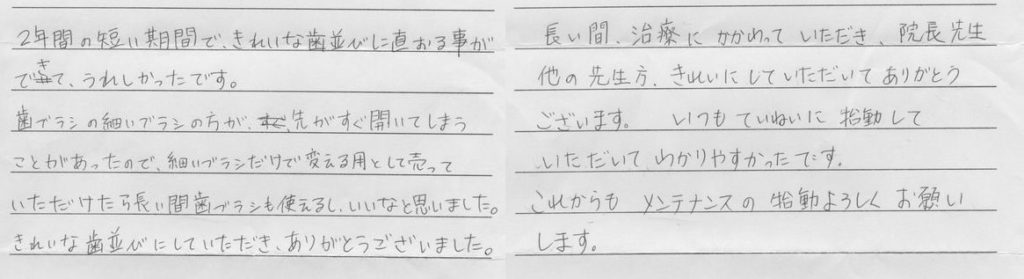 2年間の短い期間で、きれいな歯並びに直おる事が
できて、うれしかったです。
歯ブラシの細いブラシの方が、先がすぐ開いてしまう
ことがあったので、細いブラシだけで変える用として売って
いただけたら長い間歯ブラシも使えるし、いいなと思いました。
きれいな歯並びにしていただき、ありがとうございました。
長い間、治療にかかわっていただき、院長先生
他の先生方、きれいにしていただいてありがとう
ございます。 いつもていねいに指動して
いただいて、わかりやすかったです。
これからもメンテナンスの指動よろしくお願い
します。